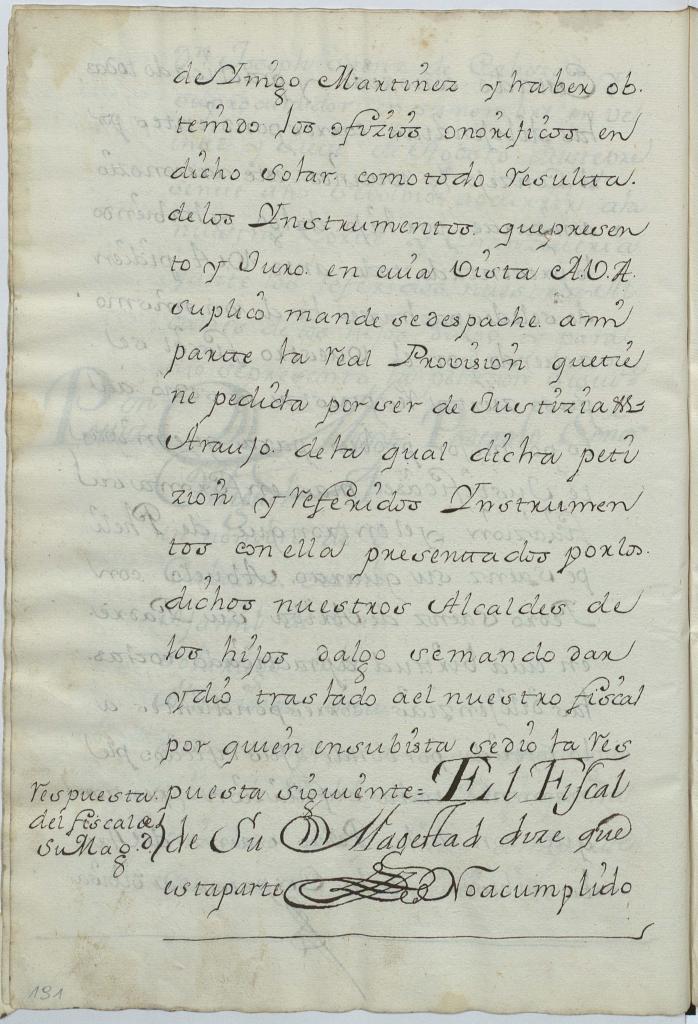 de Yñigo Martinez y haber ob.
tenido los ofizios onorificos en
dicho solar. como todo resultta.
de los Ynstrumentos. que presen
to y Juro. en cuia Vista A.V.A
suplico mande se despache. a mi
partte la real Provision que tie
ne pedida por ser de Justizia
Araujo. de la qual dicha peti
zion y referidos Ynstrumen
tos con ella presenttados por los.
dichos nuestros Alcaldes de
los hijos dalgo se mando dar
y dio traslado a el nuestro fiscal
por quien en su bista se dio la res
puesta siguiente = El Fiscal
respuesta.
del fiscal de
su Mag.d
de Su Magestad dize que
esta parte No a cumplido
191